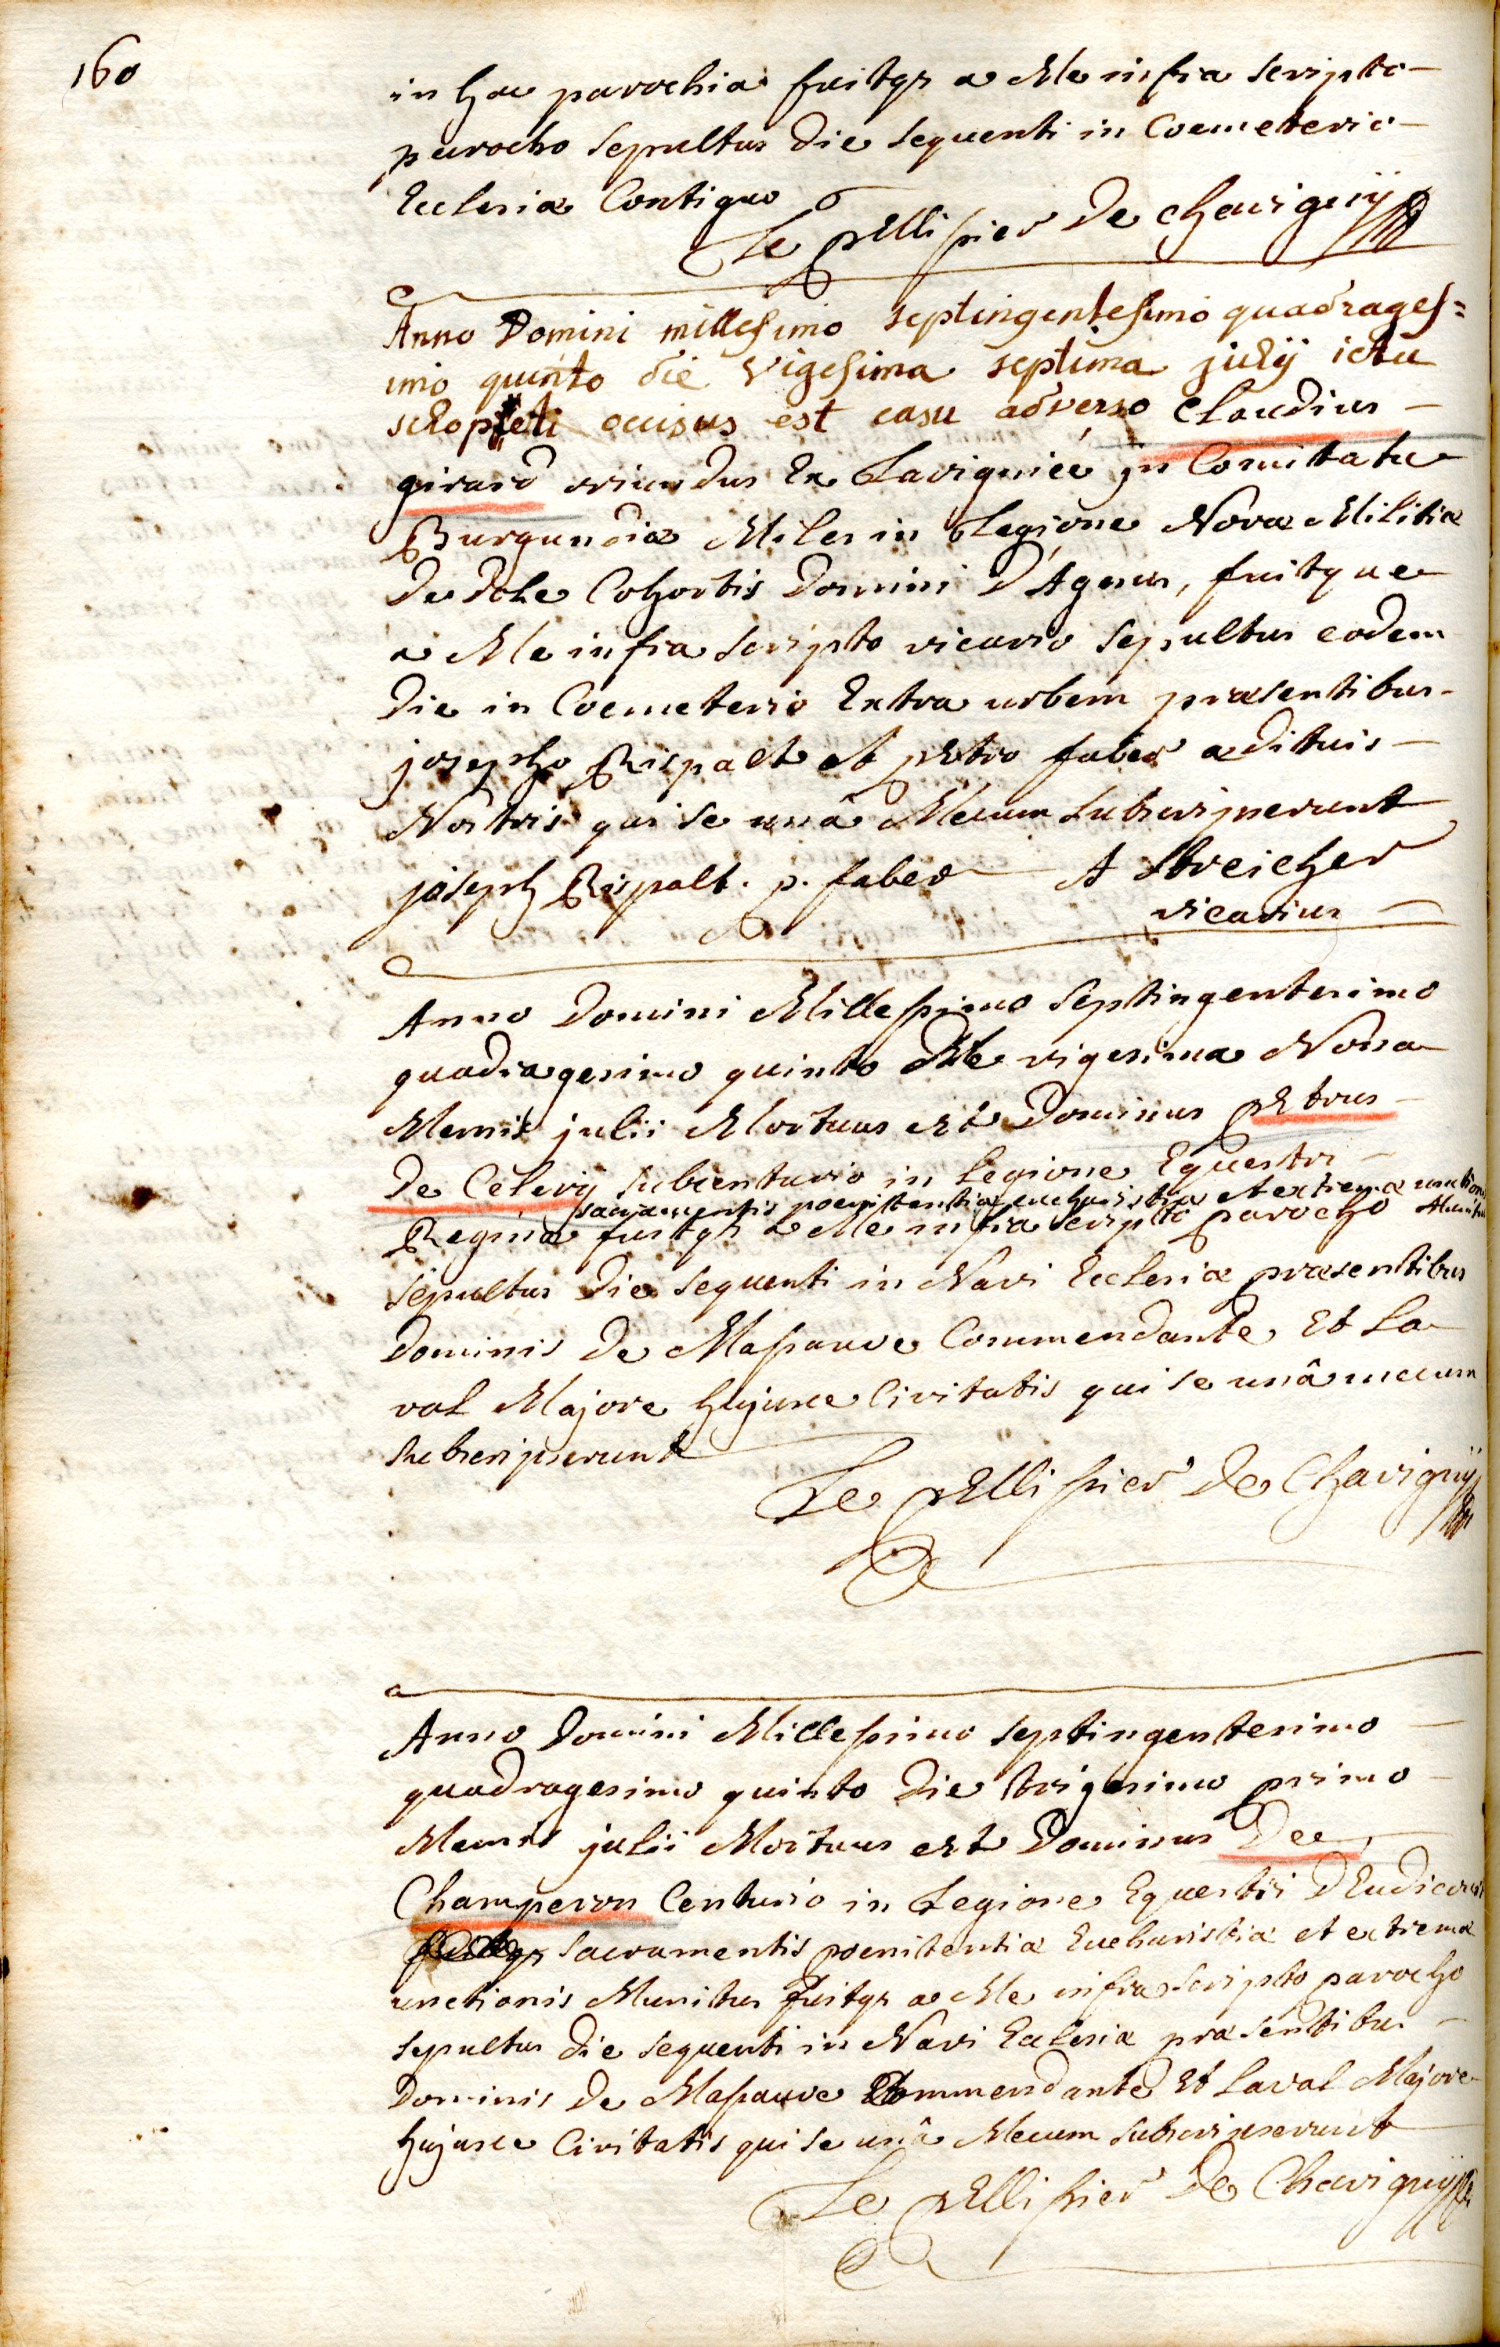 160
in hac parochia fuitqz a Me infra scripto
parocho sepultus die sequenti in Coemeterio
Ecclesiæ Contiguo
Le pellissier De chavignÿ
Anno Domini millesimo septingentesimo quadrages=
imo quinto die Vigesima septima julÿ ictu
sclopeti occisus est casu adverso Claudius
girard oriundus Ex Lavignieé in Comitatu
Burgundiæ Miles in Legione Novæ Militiæ
De Dole Cohortis Domini D'Agenus, fuitque
a Me infra scripto vicario sepultus eodem
Die in Coemeterio Extra urbem præsentibus
josepho Rispalt et petro faber ædituis
Nostris qui se unâ Mecum subscripserunt
joseph Rispalt. p. faber A Streicher
vicarius
Anno Domini Millessimo septingentesimo
quadragesimo quinto Die vigesima Nona
Mensis julii Mortuus est Dominus petrus
De Celerÿ subcenturio in Legione Equestri
sacramentis poenitentiæ eucharistiæ et extremæ unctionis
Reginæ fuitqz a Me infra scripto parocho Munitus
sepultus Die sequenti in Navi Ecclesiæ præsentibus
Dominis De Massauve Commendante Et La
val Majore hujusce Civitatis qui se unâ mecum
subscripserunt
Le pellissier De Chavignÿ
Anno Domini Millessimo septingentesimo
quadragesimo quinto Die trigesimo primo
Mensis julii Mortuus est Dominus De
Champeron Centurio in Legione Equestri D'Eudicourt
fuitqz sacramentis poenitentiæ Eucharistiæ et extremæ
unctionis Munitus fuitqz a Me infra scripto parocho
sepultus die sequenti in Navi Ecclesiæ præsentibus
Dominis De Massauve Commendante Et Laval Majore
hujusce Civitatis qui se unâ Mecum subscripserunt
Le pellissier De Chavignÿ